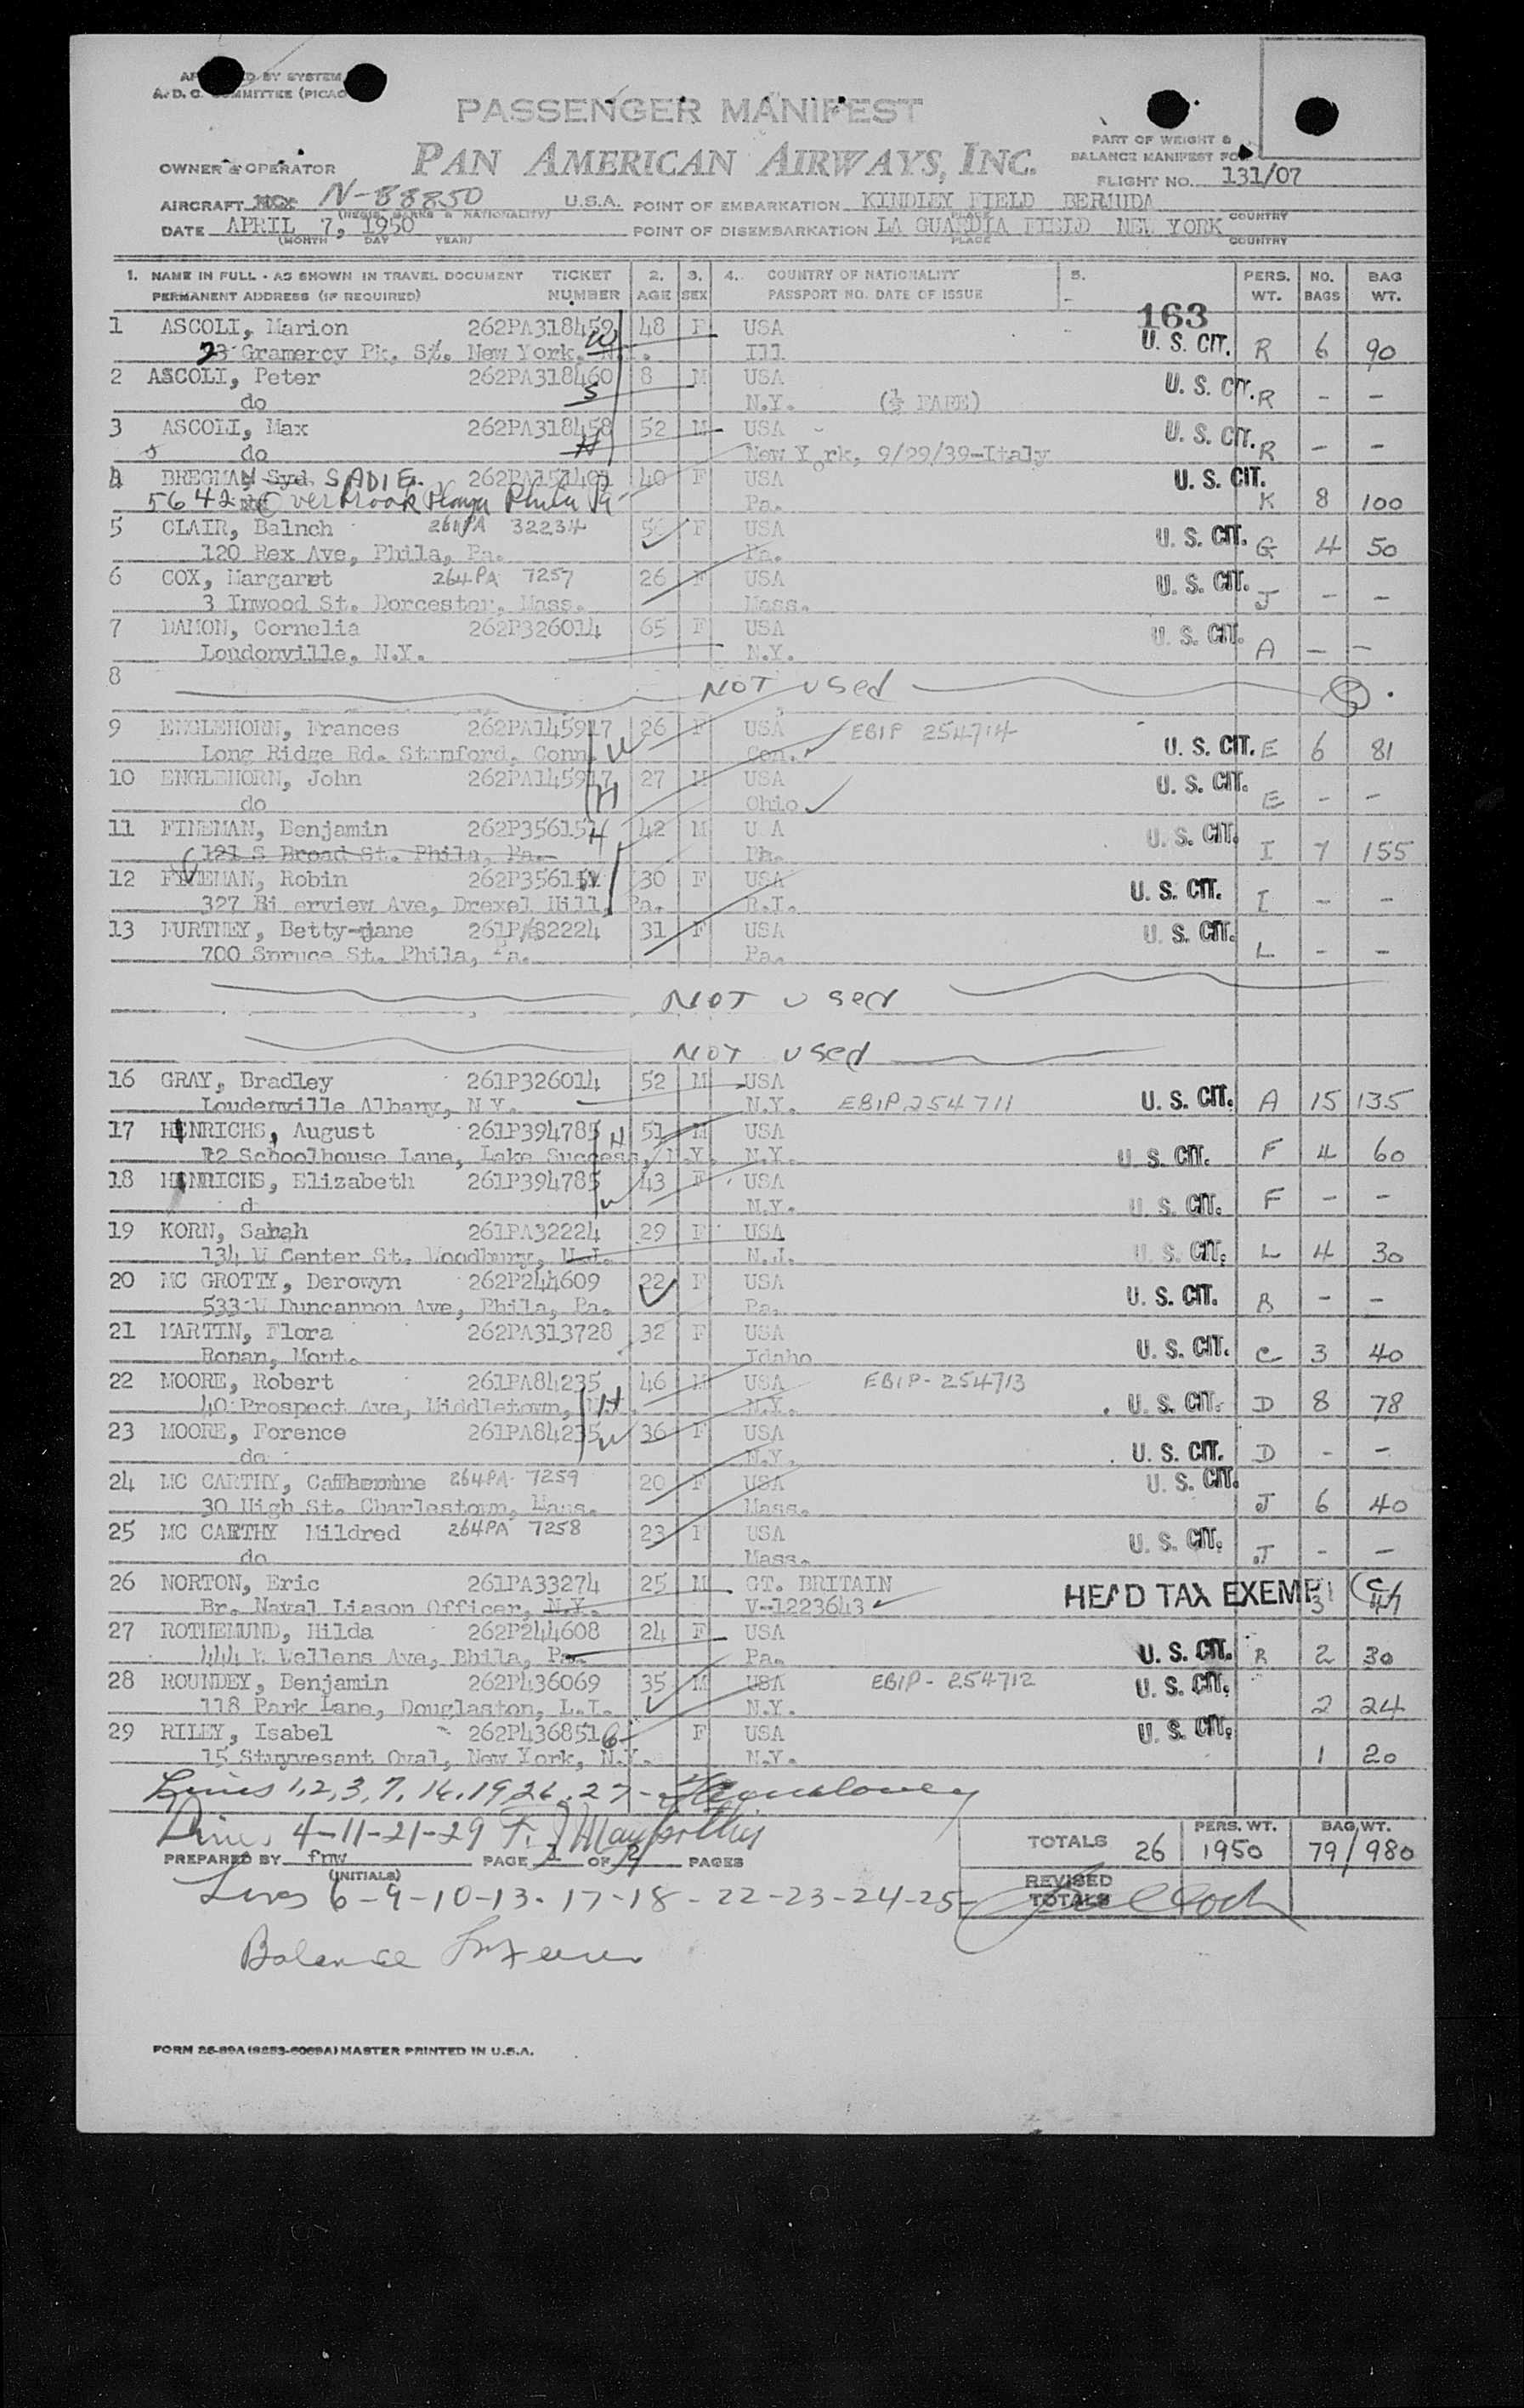 PASSENGER MANIFEST
PAN AMERICAN AIRWAYS, INC.
PART OF WEIGHT &
BALANCE MANIFEST FOR
OWNER & OPERATOR
FLIGHT NO. 131/07
AIRCRAFT N-88850 U.S.A. POINT OF EMBARKATION KINDLEY FIELD BERMUDA
DATE APRIL 7, 1950 POINT OF DISEMBARKATION LA GUARDIA FIELD NEW YORK
(MONTH DAY YEAR) PLACE COUNTRY
1. NAME IN FULL - AS SHOWN IN TRAVEL DOCUMENT TICKET 2. 3. 4. COUNTRY OF NATIONALITY 5. PERS. NO. BAG
PERMANENT ADDRESS (IF REQUIRED) NUMBER AGE SEX PASSPORT NO. DATE OF ISSUE WT. BAGS WT.
163
1 ASCOLI, Marion 262PA318459 W 48 F USA
23 Gramercy Pk. St. New York. N.Y. Ill U. S. CIT. R 6 90
2 ASCOLI, Peter 262PA318460 8 M USA
do S N.Y. (½ FARE) U. S. CIT. R - -
3 ASCOLI, Max 262PA318458 52 M USA
do H New York, 9/29/39-Italy U. S. CIT. R - -
4 BREGMAN Syd SADIE 262PA151401 40 F USA
5642 Overbrook Phila Pa Pa. U. S. CIT. K 8 100
5 CLAIR, Balnch 261PA 32234 56 F USA
120 Rex Ave, Phila, Pa. Pa. U. S. CIT. G 4 50
6 COX, Margaret 264PA 7257 26 F USA
3 Inwood St. Dorcester, Mass. Mass. U. S. CIT. J - -
7 DAMON, Cornelia 262P326014 65 F USA
Loudonville, N.Y. N.Y. U. S. CIT. A - -
8 NOT used
9 ENGLEHORN, Frances 262PA145917 26 F USA EBIP 254714
Long Ridge Rd. Stamford, Conn. W Con. U. S. CIT. E 6 81
10 ENGLEHORN, John 262PA145917 27 M USA
do H Ohio U. S. CIT. E - -
11 FINEMAN, Benjamin 262P35615 H 42 M U A
121 S Broad St. Phila, Pa. U. S. CIT. I 7 155
12 FINEMAN, Robin 262P35615 W 30 F USA
327 Ri erview Ave, Drexel Hill, Pa. R.I. U. S. CIT. I - -
13 FURTHEY, Betty-jane 261PA32224 31 F USA
700 Spruce St. Phila, Pa. Pa. U. S. CIT. L - -
NOT used
NOT used
16 GRAY, Bradley 261P326014 52 M USA
Loudenville Albany, N.Y. N.Y. EBIP254711 U. S. CIT. A 15 135
17 HINRICHS, August 261P394785 H 51 M USA
12 Schoolhouse Lane, Lake Success, N.Y. N.Y. U. S. CIT. F 4 60
18 HINRICHS, Elizabeth 261P394785 W 43 F USA
d N.Y. U. S. CIT. F - -
19 KORN, Sarah 261PA32224 29 F USA
134 W Center St. Woodbury, N.J. N.J. U. S. CIT. L 4 30
20 MC GROTTY, Derowyn 262P244609 22 F USA
533 W Duncannon Ave, Phila, Pa. Pa. U. S. CIT. B - -
21 MARTIN, Flora 262PA313728 32 F USA
Ronan, Mont. Idaho U. S. CIT. C 3 40
22 MOORE, Robert 261PA84235 46 M USA EBIP-254713
40 Prospect Ave, Middletown, N.Y. H N.Y. U. S. CIT. D 8 78
23 MOORE, Forence 261PA84235 W 36 F USA
do N.Y. U. S. CIT. D - -
24 MC CARTHY, Catherine 264PA 7259 20 F USA
30 High St. Charlestown, Mass. Mass. U. S. CIT. J 6 40
25 MC CARTHY Mildred 264PA 7258 23 F USA
do Mass. U. S. CIT. J - -
26 NORTON, Eric 261PA33274 25 M GT. BRITAIN HEAD TAX EXEMPT
Br. Naval Liason Officer, N.Y. V-1223643 3 47
27 ROTHEMUND, Hilda 262P244608 24 F USA
444 W Wellens Ave, Phila, Pa. Pa. U. S. CIT. B 2 30
28 ROUNDEY, Benjamin 262P436069 35 M USA EBIP-254712
118 Park Lane, Douglaston, L.I. N.Y. U. S. CIT. 2 24
29 RILEY, Isabel 262P436851 F USA
15 Stuyvesant Oval, New York, N.Y. N.Y. U. S. CIT. 1 20
Lines 1, 2, 3, 7, 16, 19 26, 27 -
Lines 4-11-21-29
PERS. WT. BAG WT.
TOTALS 26 1950 79/980
PREPARED BY fmw PAGE 1 OF 2 PAGES
(INITIALS)
REVISED
TOTALS
Lines 6-9-10-13-17-18-22-23-24-25-
Balance
FORM 26-89A (9253-6069A) MASTER PRINTED IN U.S.A.